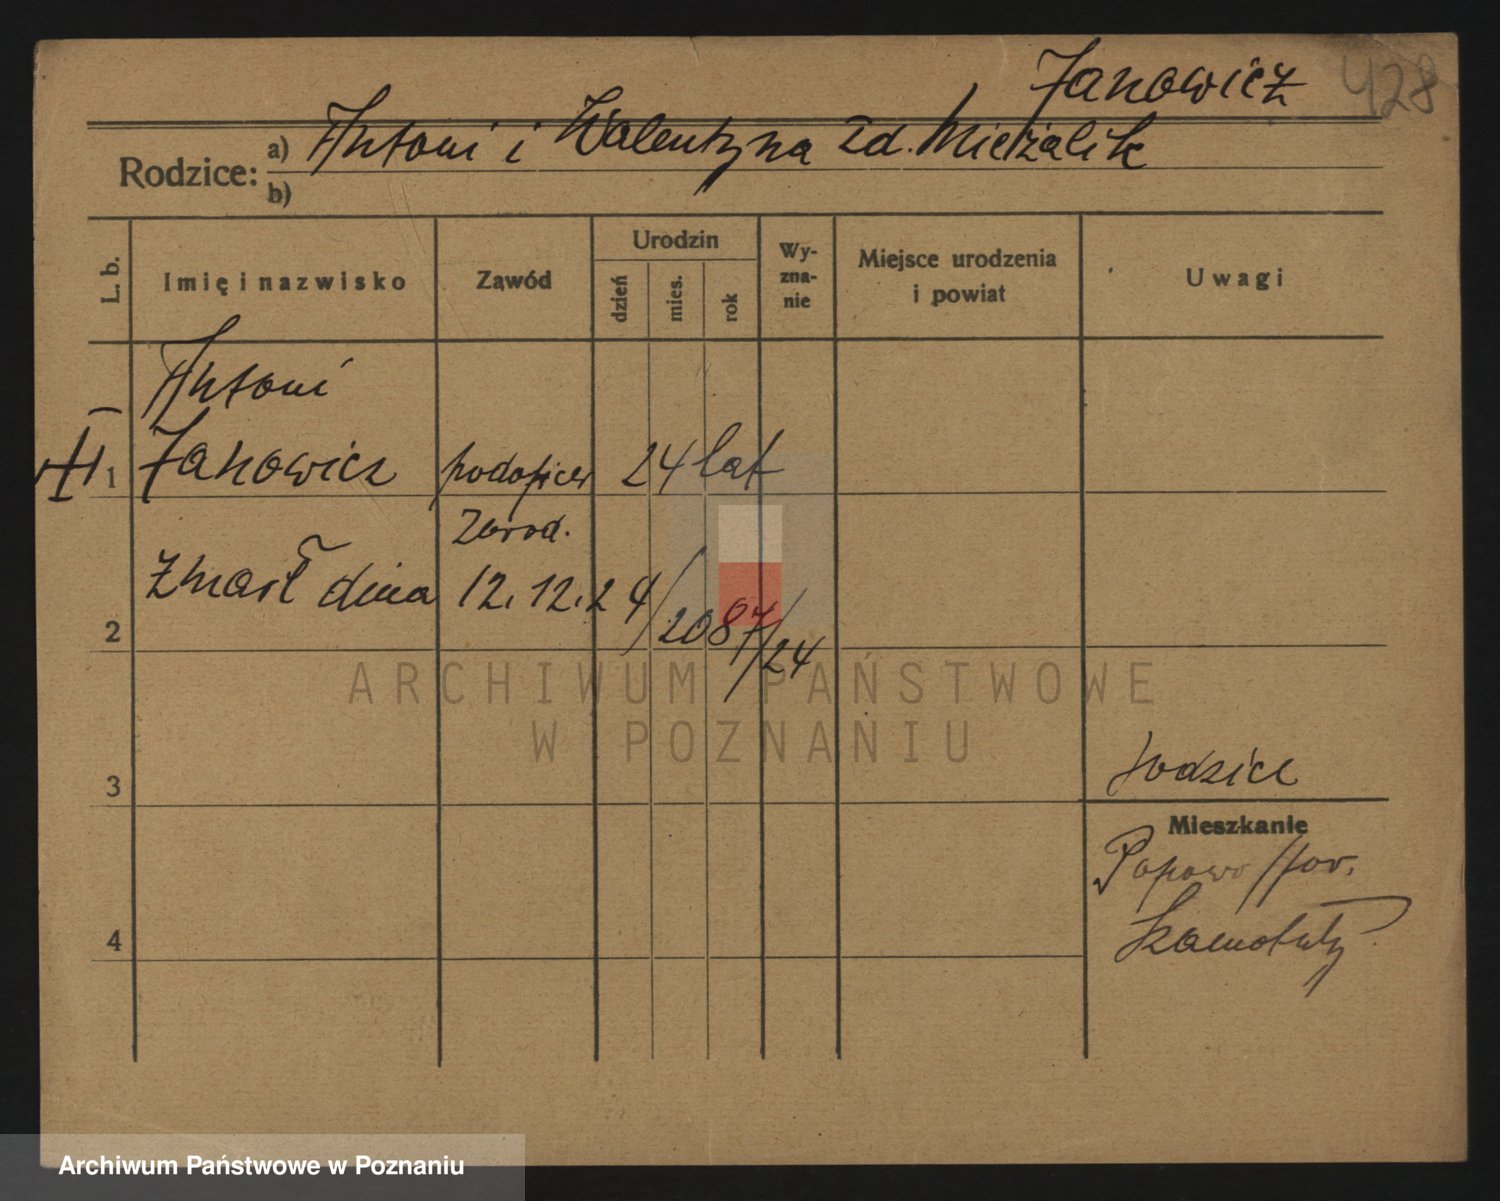 Janowicz 428
Rodzice: a) Antoni i Walentyna zd. Mieżalik
b)
L. b. Imię i nazwisko Ząwód Urodzin dzień mies. rok Wy-zna-nie Miejsce urodzenia i powiat Uwagi
Antoni
1 Janowicz podoficer 24 lat
Zawod.
Zmarł dnia 12.12.24/2087/24
2
ARCHIWUM PAŃSTWOWE
W POZNANIU
rodzice
3
Mieszkanie
Popowo /pow.
Szamotuły
4
Archiwum Państwowe w Poznaniu